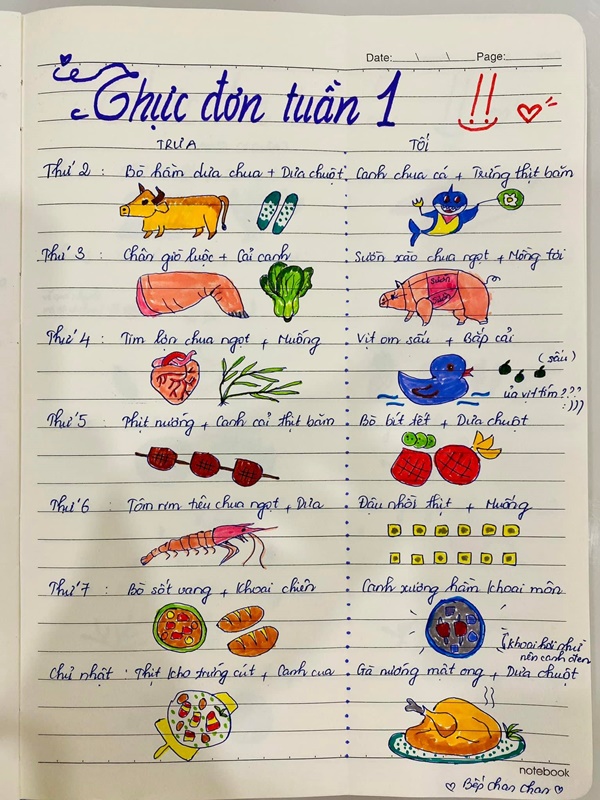 Date: \ \ Page:
Thực đơn tuần 1 !!
TRƯA TỐI
Thứ 2 : Bò hầm dưa chua + Dưa chuột Canh chua cá + Trứng thịt băm
Thứ 3 : Chân giò luộc + Cải canh Sườn xào chua ngọt + Mồng tơi
Sườn
Sườn
Thứ 4 : Tim lợn chua ngọt + Muống Vịt om sấu + Bắp cải
(sấu)
ủa vịt tím???
:)))
Thứ 5 : Thịt nướng + Canh cải thịt băm Bò bít tết + Dưa chuột
Thứ 6 : Tôm rim tiêu chua ngọt + Dưa Đậu nhồi thịt + Muống
Thứ 7 : Bò sốt vang + Khoai chiên Canh xương hầm khoai môn
khoai hơi như
nên canh đen
Chủ nhật : Thịt kho trứng cút + Canh cua Gà nướng mật ong + Dưa chuột
notebook
♡ Bếp chan chan ♡